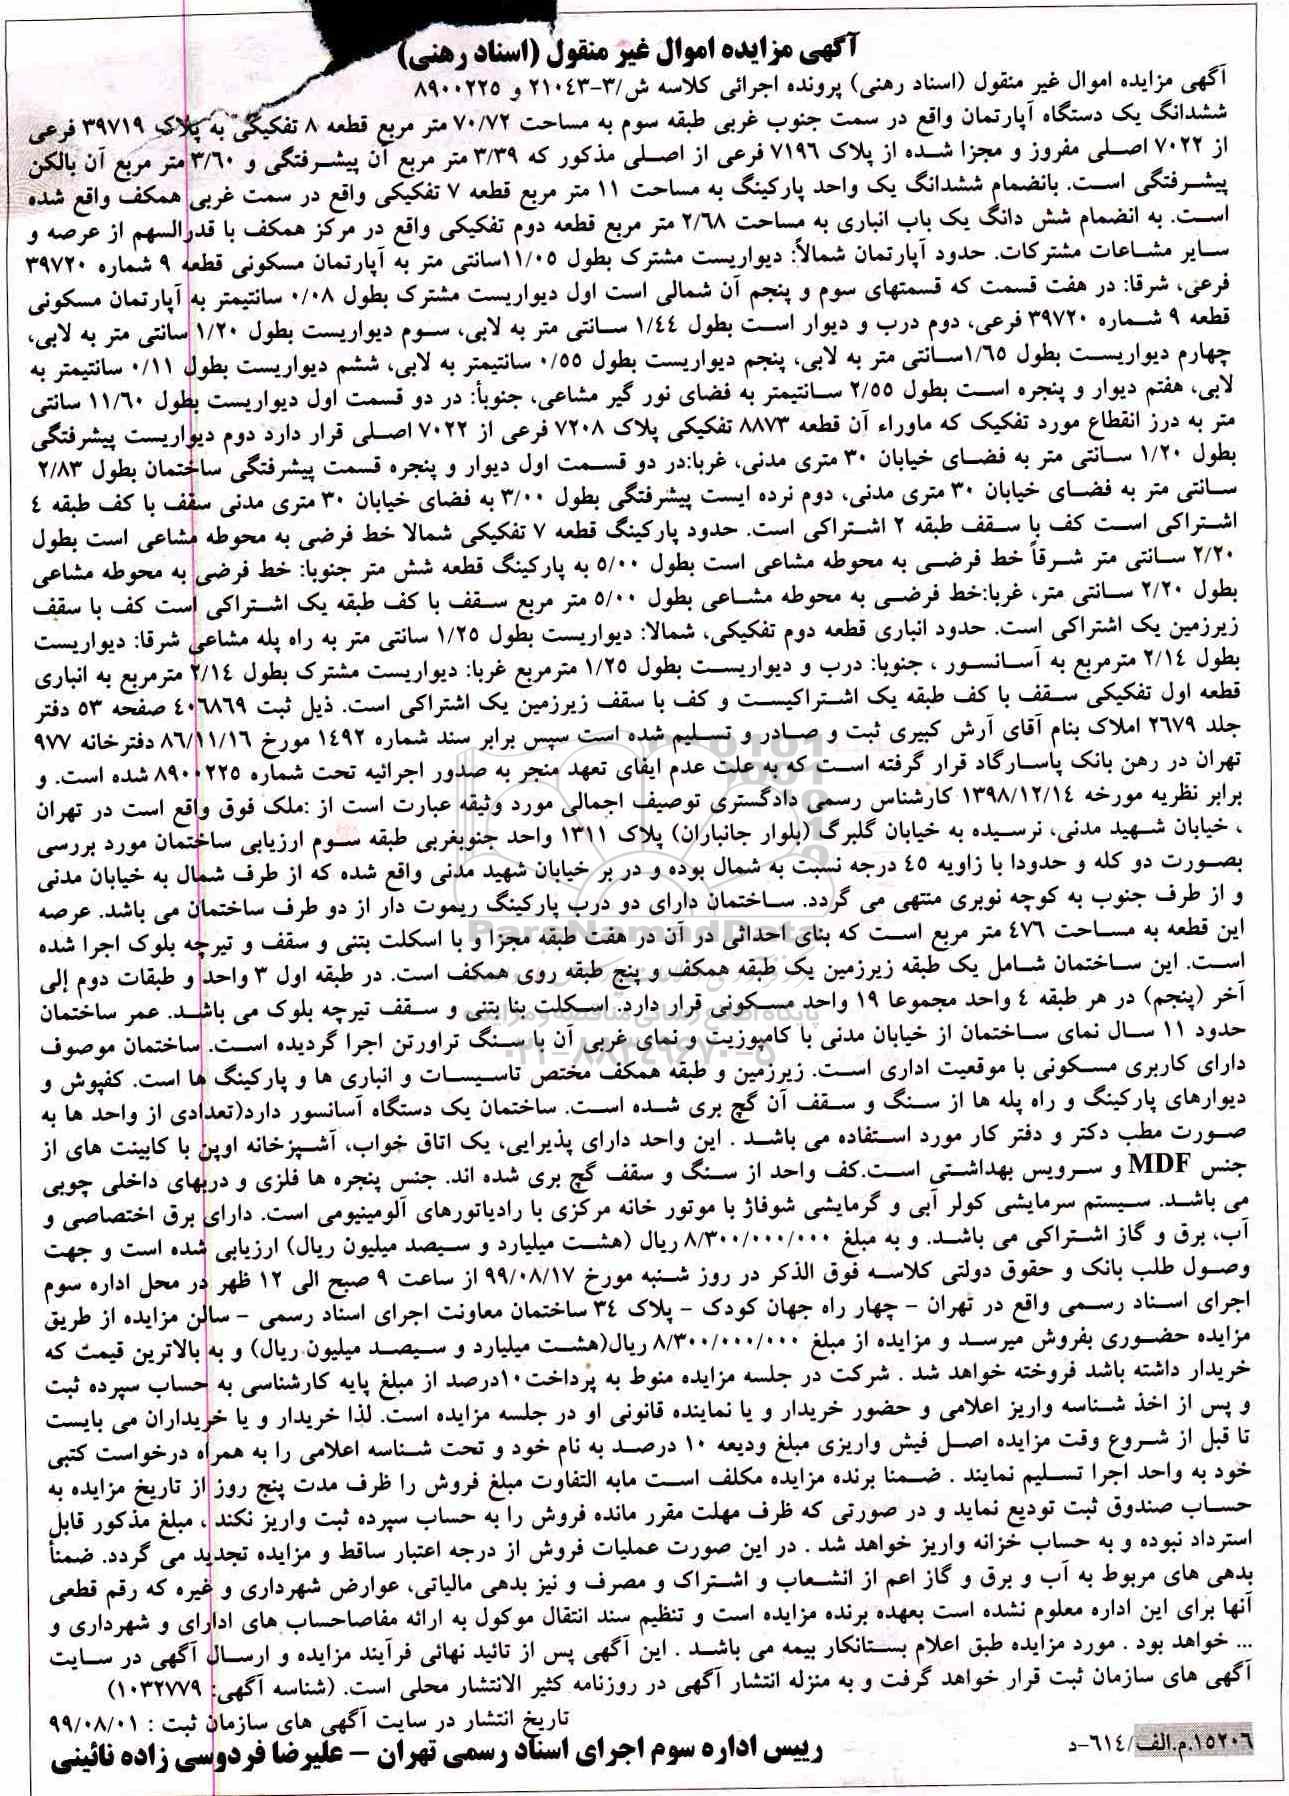 آگهی مزایده اموال غیر منقول (اسناد رهنی)
آگهی مزایده اموال غیر منقول (اسناد رهنی) پرونده اجرائی کلاسه ش/۳-۲۱۰۴۳ و ۸۹۰۰۲۲۵
ششدانگ یک دستگاه آپارتمان واقع در سمت جنوب غربی طبقه سوم به مساحت ۷۰/۷۲ متر مربع قطعه ۸ تفکیکی به پلاک ۳۹۷۱۹ فرعی
از ۷۰۲۲ اصلی مفروز و مجزا شده از پلاک ۷۱۹۶ فرعی از اصلی مذکور که ۳/۳۹ متر مربع آن پیشرفتگی و ۳/۶۰ متر مربع آن بالکن
پیشرفتگی است. بانضمام ششدانگ یک واحد پارکینگ به مساحت ۱۱ متر مربع قطعه ۷ تفکیکی واقع در سمت غربی همکف واقع شده
است. به انضمام شش دانگ یک باب انباری به مساحت ۲/۶۸ متر مربع قطعه دوم تفکیکی واقع در مرکز همکف با قدرالسهم از عرصه و
سایر مشاعات مشترکات. حدود آپارتمان شمالاً: دیواریست مشترک بطول ۱۱/۰۵سانتی متر به آپارتمان مسکونی قطعه ۹ شماره ۳۹۷۲۰
فرعی، شرقا: در هفت قسمت که قسمتهای سوم و پنجم آن شمالی است اول دیواریست مشترک بطول ۰/۰۸ سانتیمتر به آپارتمان مسکونی
قطعه ۹ شماره ۳۹۷۲۰ فرعی، دوم درب و دیوار است بطول ۱/۴۴ سانتی متر به لابی، سوم دیواریست بطول ۱/۲۰ سانتی متر به لابی،
چهارم دیواریست بطول ۱/۶۵سانتی متر به لابی، پنجم دیواریست بطول ۰/۵۵ سانتیمتر به لابی، ششم دیواریست بطول ۰/۱۱ سانتیمتر به
لابی، هفتم دیوار و پنجره است بطول ۲/۵۵ سانتیمتر به فضای نور گیر مشاعی، جنوبأ: در دو قسمت اول دیواریست بطول ۱۱/۶۰ سانتی
متر به درز انقطاع مورد تفکیک که ماوراء آن قطعه ۸۸۷۳ تفکیکی پلاک ۷۲۰۸ فرعی از ۷۰۲۲ اصلی قرار دارد دوم دیواریست پیشرفتگی
بطول ۱/۲۰ سانتی متر به فضای خیابان ۳۰ متری مدنی، غربا:در دو قسمت اول دیوار و پنجره قسمت پیشرفتگی ساختمان بطول ۲/۸۳
سانتی متر به فضای خیابان ۳۰ متری مدنی، دوم نرده ایست پیشرفتگی بطول ۳/۰۰ به فضای خیابان ۳۰ متری مدنی سقف با کف طبقه ٤
اشتراکی است کف با سقف طبقه ۲ اشتراکی است. حدود پارکینگ قطعه ۷ تفکیکی شمالا خط فرضی به محوطه مشاعی است بطول
۲/۲۰ سانتی متر شرقاً خط فرضی به محوطه مشاعی است بطول ۵/۰۰ به پارکینگ قطعه شش متر جنوبا: خط فرضی به محوطه مشاعی
بطول ۲/۲۰ سانتی متر، غربا:خط فرضی به محوطه مشاعی بطول ۵/۰۰ متر مربع سقف با کف طبقه یک اشتراکی است کف با سقف
زیرزمین یک اشتراکی است. حدود انباری قطعه دوم تفکیکی، شمالا: دیواریست بطول ۱/۲۵ سانتی متر به راه پله مشاعی شرقا: دیواریست
بطول ۲/۱۴ مترمربع به آسانسور ، جنوبا: درب و دیواریست بطول ۱/۲۵ مترمربع غربا: دیواریست مشترک بطول ۲/۱۴ مترمربع به انباری
قطعه اول تفکیکی سقف با کف طبقه یک اشتراکیست و کف با سقف زیرزمین یک اشتراکی است. ذیل ثبت ۴۰۶۸۶۹ صفحه ۵۳ دفتر
جلد ۲۶۷۹ املاک بنام آقای آرش کبیری ثبت و صادر و تسلیم شده است سپس برابر سند شماره ۱۴۹۲ مورخ ۸۶/۱۱/۱۶ دفترخانه ۹۷۷
تهران در رهن بانک پاسارگاد قرار گرفته است که به علت عدم ایفای تعهد منجر به صدور اجرائیه تحت شماره ۸۹۰۰۲۲۵ شده است. و
برابر نظریه مورخه ۱۳۹۸/۱۲/۱۴ کارشناس رسمی دادگستری توصیف اجمالی مورد وثیقه عبارت است از :ملک فوق واقع است در تهران
، خیابان شهید مدنی، نرسیده به خیابان گلبرگ (بلوار جانبازان) پلاک ۱۳۱۱ واحد جنوبغربی طبقه سوم ارزیابی ساختمان مورد بررسی
بصورت دو کله و حدودا با زاویه ٤٥ درجه نسبت به شمال بوده و در بر خیابان شهید مدنی واقع شده که از طرف شمال به خیابان مدنی
و از طرف جنوب به کوچه نوبری منتهی می گردد. ساختمان دارای دو درب پارکینگ ریموت دار از دو طرف ساختمان می باشد. عرصه
این قطعه به مساحت ۴۷۶ متر مربع است که بنای احداثی در آن در هفت طبقه مجزا و با اسکلت بتنی و سقف و تیرچه بلوک اجرا شده
است. این ساختمان شامل یک طبقه زیرزمین یک طبقه همکف و پنج طبقه روی همکف است. در طبقه اول ۳ واحد و طبقات دوم إلی
آخر (پنجم) در هر طبقه ٤ واحد مجموعا ۱۹ واحد مسکونی قرار دارد. اسکلت بنا بتنی و سقف تیرچه بلوک می باشد. عمر ساختمان
حدود ۱۱ سال نمای ساختمان از خیابان مدنی با کامپوزیت و نمای غربی آن با سنگ تراورتن اجرا گردیده است. ساختمان موصوف
دارای کاربری مسکونی با موقعیت اداری است. زیرزمین و طبقه همکف مختص تاسیسات و انباری ها و پارکینگ ها است. کفپوش و
دیوارهای پارکینگ و راه پله ها از سنگ و سقف آن گچ بری شده است. ساختمان یک دستگاه آسانسور دارد(تعدادی از واحد ها به
صورت مطب دکتر و دفتر کار مورد استفاده می باشد . این واحد دارای پذیرایی، یک اتاق خواب، آشپزخانه اوپن با کابینت های از
جنس MDF و سرویس بهداشتی است.کف واحد از سنگ و سقف گچ بری شده اند. جنس پنجره ها فلزی و دربهای داخلی چوبی
می باشد. سیستم سرمایشی کولر آبی و گرمایشی شوفاژ با موتور خانه مرکزی با رادیاتورهای آلومینیومی است. دارای برق اختصاصی و
آب، برق و گاز اشتراکی می باشد. و به مبلغ ۸/۳۰۰/۰۰۰/۰۰۰ ریال (هشت میلیارد و سیصد میلیون ریال) ارزیابی شده است و جهت
وصول طلب بانک و حقوق دولتی کلاسه فوق الذکر در روز شنبه مورخ ۹۹/۰۸/۱۷ از ساعت ۹ صبح الی ۱۲ ظهر در محل اداره سوم
اجرای اسناد رسمی واقع در تهران - چهار راه جهان کودک - پلاک ٣٤ ساختمان معاونت اجرای اسناد رسمی - سالن مزایده از طریق
مزایده حضوری بفروش میرسد و مزایده از مبلغ ۸/۳۰۰/۰۰۰/۰۰۰ ریال(هشت میلیارد و سیصد میلیون ریال) و به بالاترین قیمت که
خریدار داشته باشد فروخته خواهد شد . شرکت در جلسه مزایده منوط به پرداخت۱۰درصد از مبلغ پایه کارشناسی به حساب سپرده ثبت
و پس از اخذ شناسه واریز اعلامی و حضور خریدار و یا نماینده قانونی او در جلسه مزایده است. لذا خریدار و یا خریداران می بایست
تا قبل از شروع وقت مزایده اصل فیش واریزی مبلغ ودیعه ۱۰ درصد به نام خود و تحت شناسه اعلامی را به همراه درخواست کتبی
خود به واحد اجرا تسلیم نمایند . ضمنا برنده مزایده مکلف است مابه التفاوت مبلغ فروش را ظرف مدت پنج روز از تاریخ مزایده به
حساب صندوق ثبت تودیع نماید و در صورتی که ظرف مهلت مقرر مانده فروش را به حساب سپرده ثبت واریز نکند ، مبلغ مذکور قابل
استرداد نبوده و به حساب خزانه واریز خواهد شد . در این صورت عملیات فروش از درجه اعتبار ساقط و مزایده تجدید می گردد. ضمنأ
بدهی های مربوط به آب و برق و گاز اعم از انشعاب و اشتراک و مصرف و نیز بدهی مالیاتی، عوارض شهرداری و غیره که رقم قطعی
آنها برای این اداره معلوم نشده است بعهده برنده مزایده است و تنظیم سند انتقال موکول به ارائه مفاصاحساب های ادارای و شهرداری و
... خواهد بود . مورد مزایده طبق اعلام بستانکار بیمه می باشد . این آگهی پس از تائید نهائی فرآیند مزایده و ارسال آگهی در سایت
آگهی های سازمان ثبت قرار خواهد گرفت و به منزله انتشار آگهی در روزنامه کثیر الانتشار محلی است. (شناسه آگهی: ۱۰۳۲۷۷۹)
تاریخ انتشار در سایت آگهی های سازمان ثبت : ۹۹/۰۸/۰۱
۱۵۲۰۶.م.الف/۶۱۴-د
رییس اداره سوم اجرای اسناد رسمی تهران - علیرضا فردوسی زاده نائینی
ParsNamadData
پایگاه اطلاع رسانی مناقصه و مزایده
۰۲۱-۸۸۳۴۹۶۷۰-۵